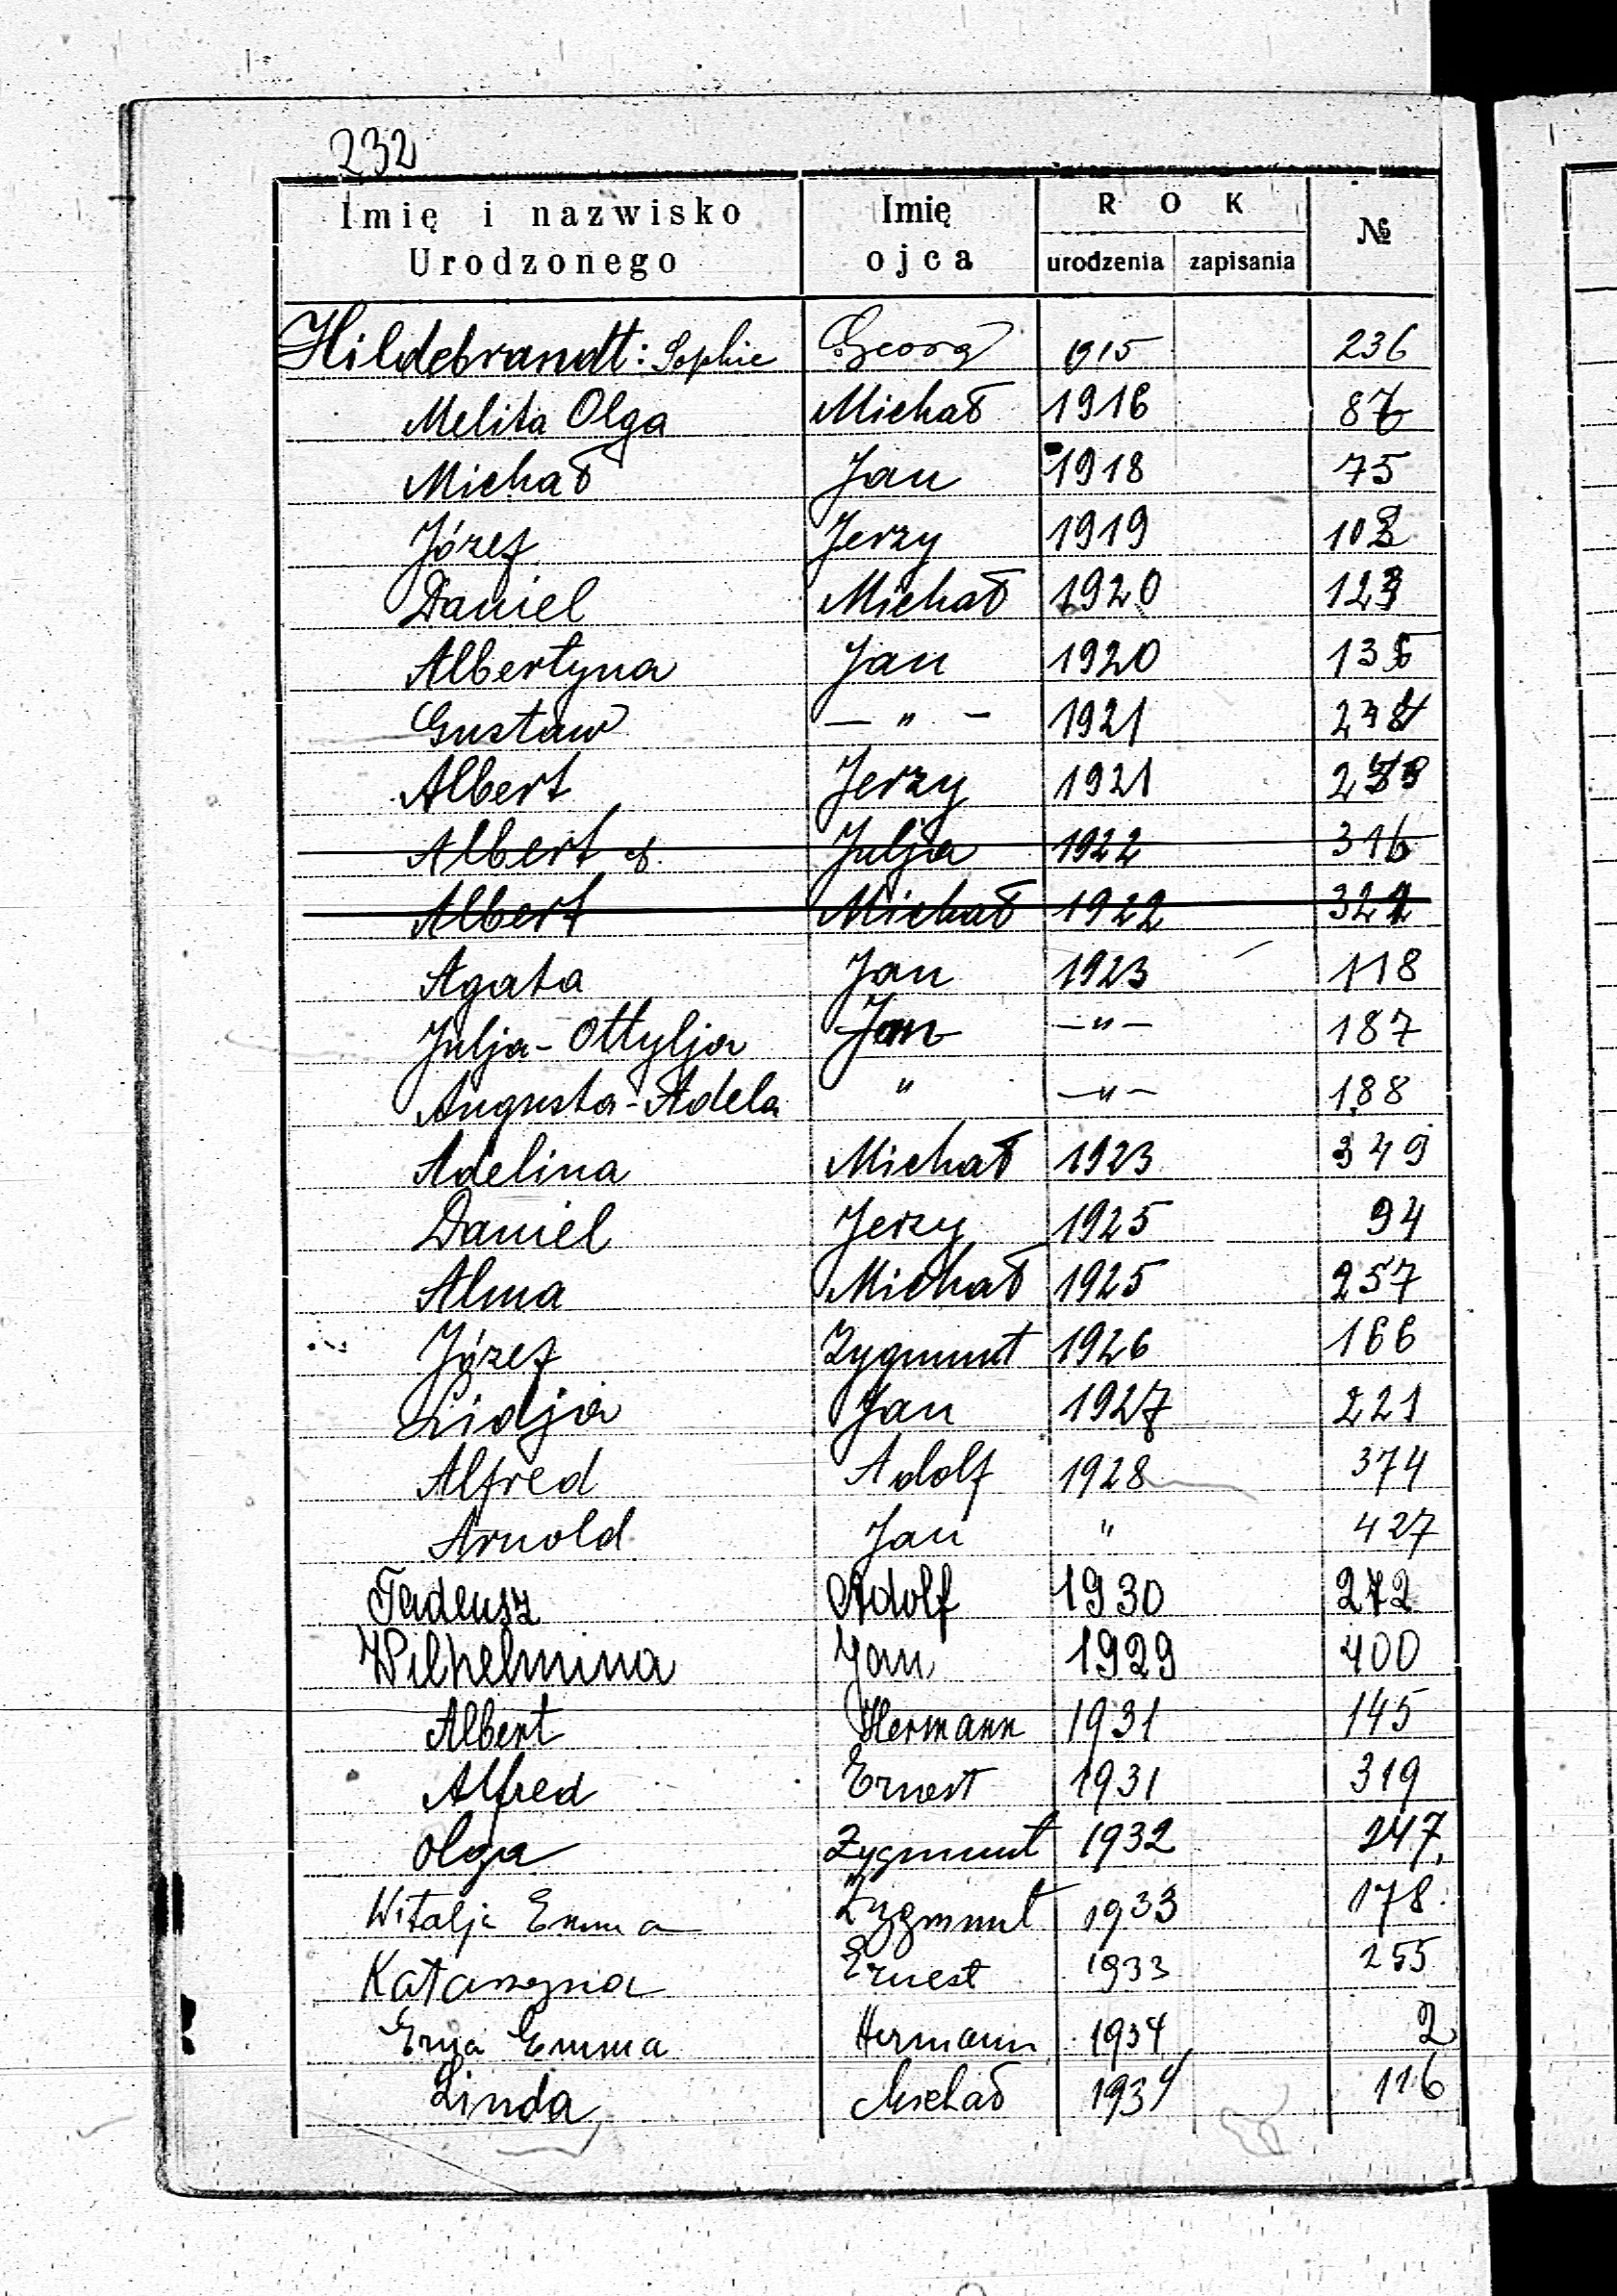 232
Imię i nazwisko Urodzonego | Imię ojca | ROK urodzenia | zapisania | №
Hildebrandt: Sophie Georg 1915 236
Melita Olga Michał 1916
Michał Jan 1918 75
Józef Jerzy 1919
Daniel Michał 1920
Albertyna Jan 1920
Gustaw — " — 1921
Albert Jerzy 1921
Albert Julja 1922 316
Albert Michał 1922
Agata Jan 1923 118
Julja-Ottylja Jan — " — 187
Augusta-Adela " — " — 188
Adelina Michał 1923 349
Daniel Jerzy 1925 94
Alma Michał 1925 257
Józef Zygmunt 1926 166
Lidja Jan 1927 221
Alfred Adolf 1928 374
Arnold Jan " 427
Tadeusz Adolf 1930 272
Wilhelmina Jan 1929 400
Albert Hermann 1931 145
Alfred Ernest 1931 319
Olga Zygmunt 1932 247.
Witalja Emma Zygmunt 1933 178.
Katarzyna Ernest 1933 255
Erna Emma Hermann 1934 2
Linda Michał 1934 116